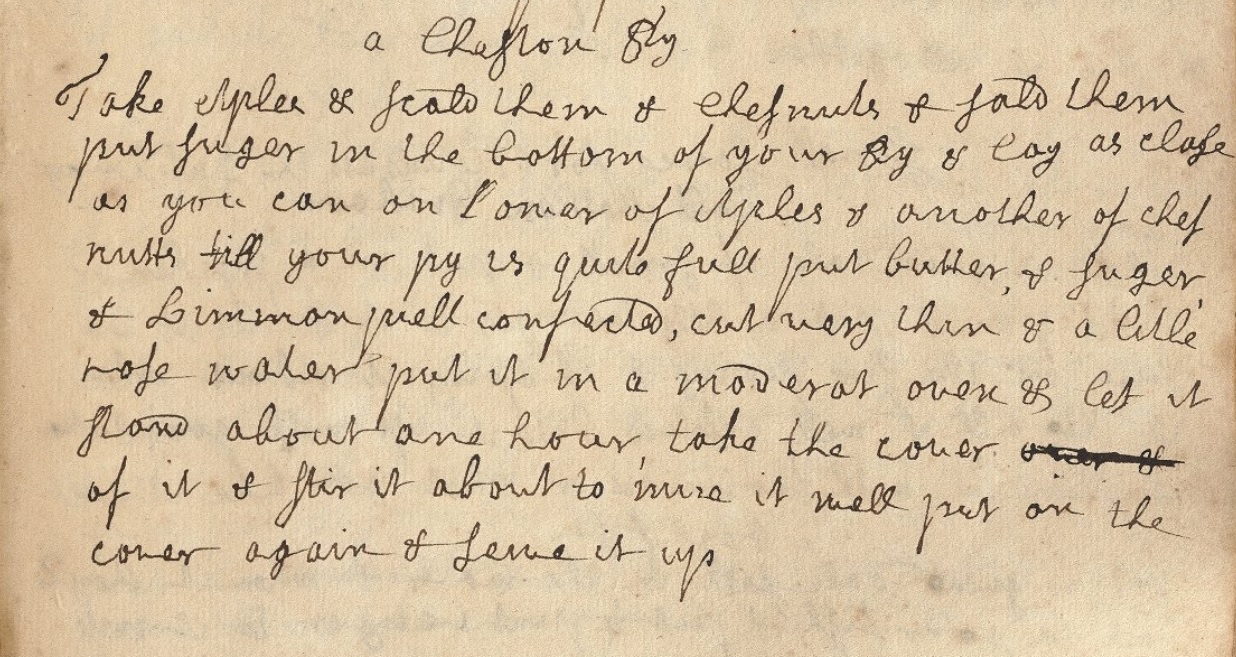 a Cheston Py
Take Aples & scald them & Chesnuts & sald them
put suger in the bottom of your Py & lay as close
as you can on Lower of Aples & another of ches
nutts till your py is quite full put butter, & suger,
& Limmon pell confected, cut very thin & a litle
rose water put it in a moderat oven & let it
stand about one hour, take the cover over &
of it & stir it about to mixe it well put on the
cover again & serve it up